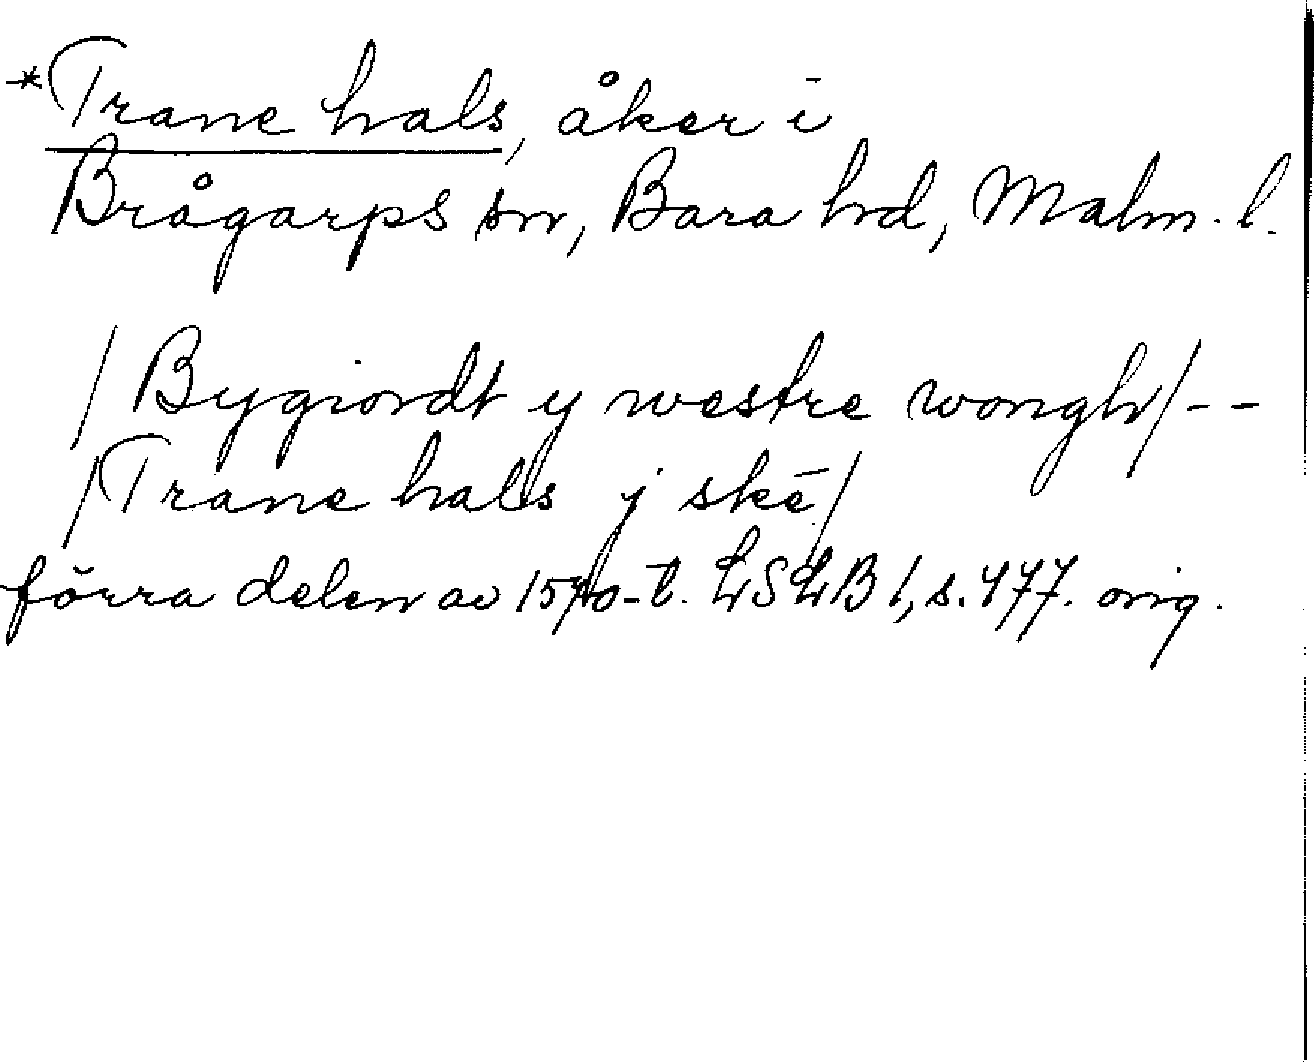 *Trane hals, åker i
Brågarps sn, Bara hd, Malm. l.
/Bygiordt y westre wongh/--
/Trane hals j ske/
förra delen av 1570-t. LSLB I, s. 477. orig.